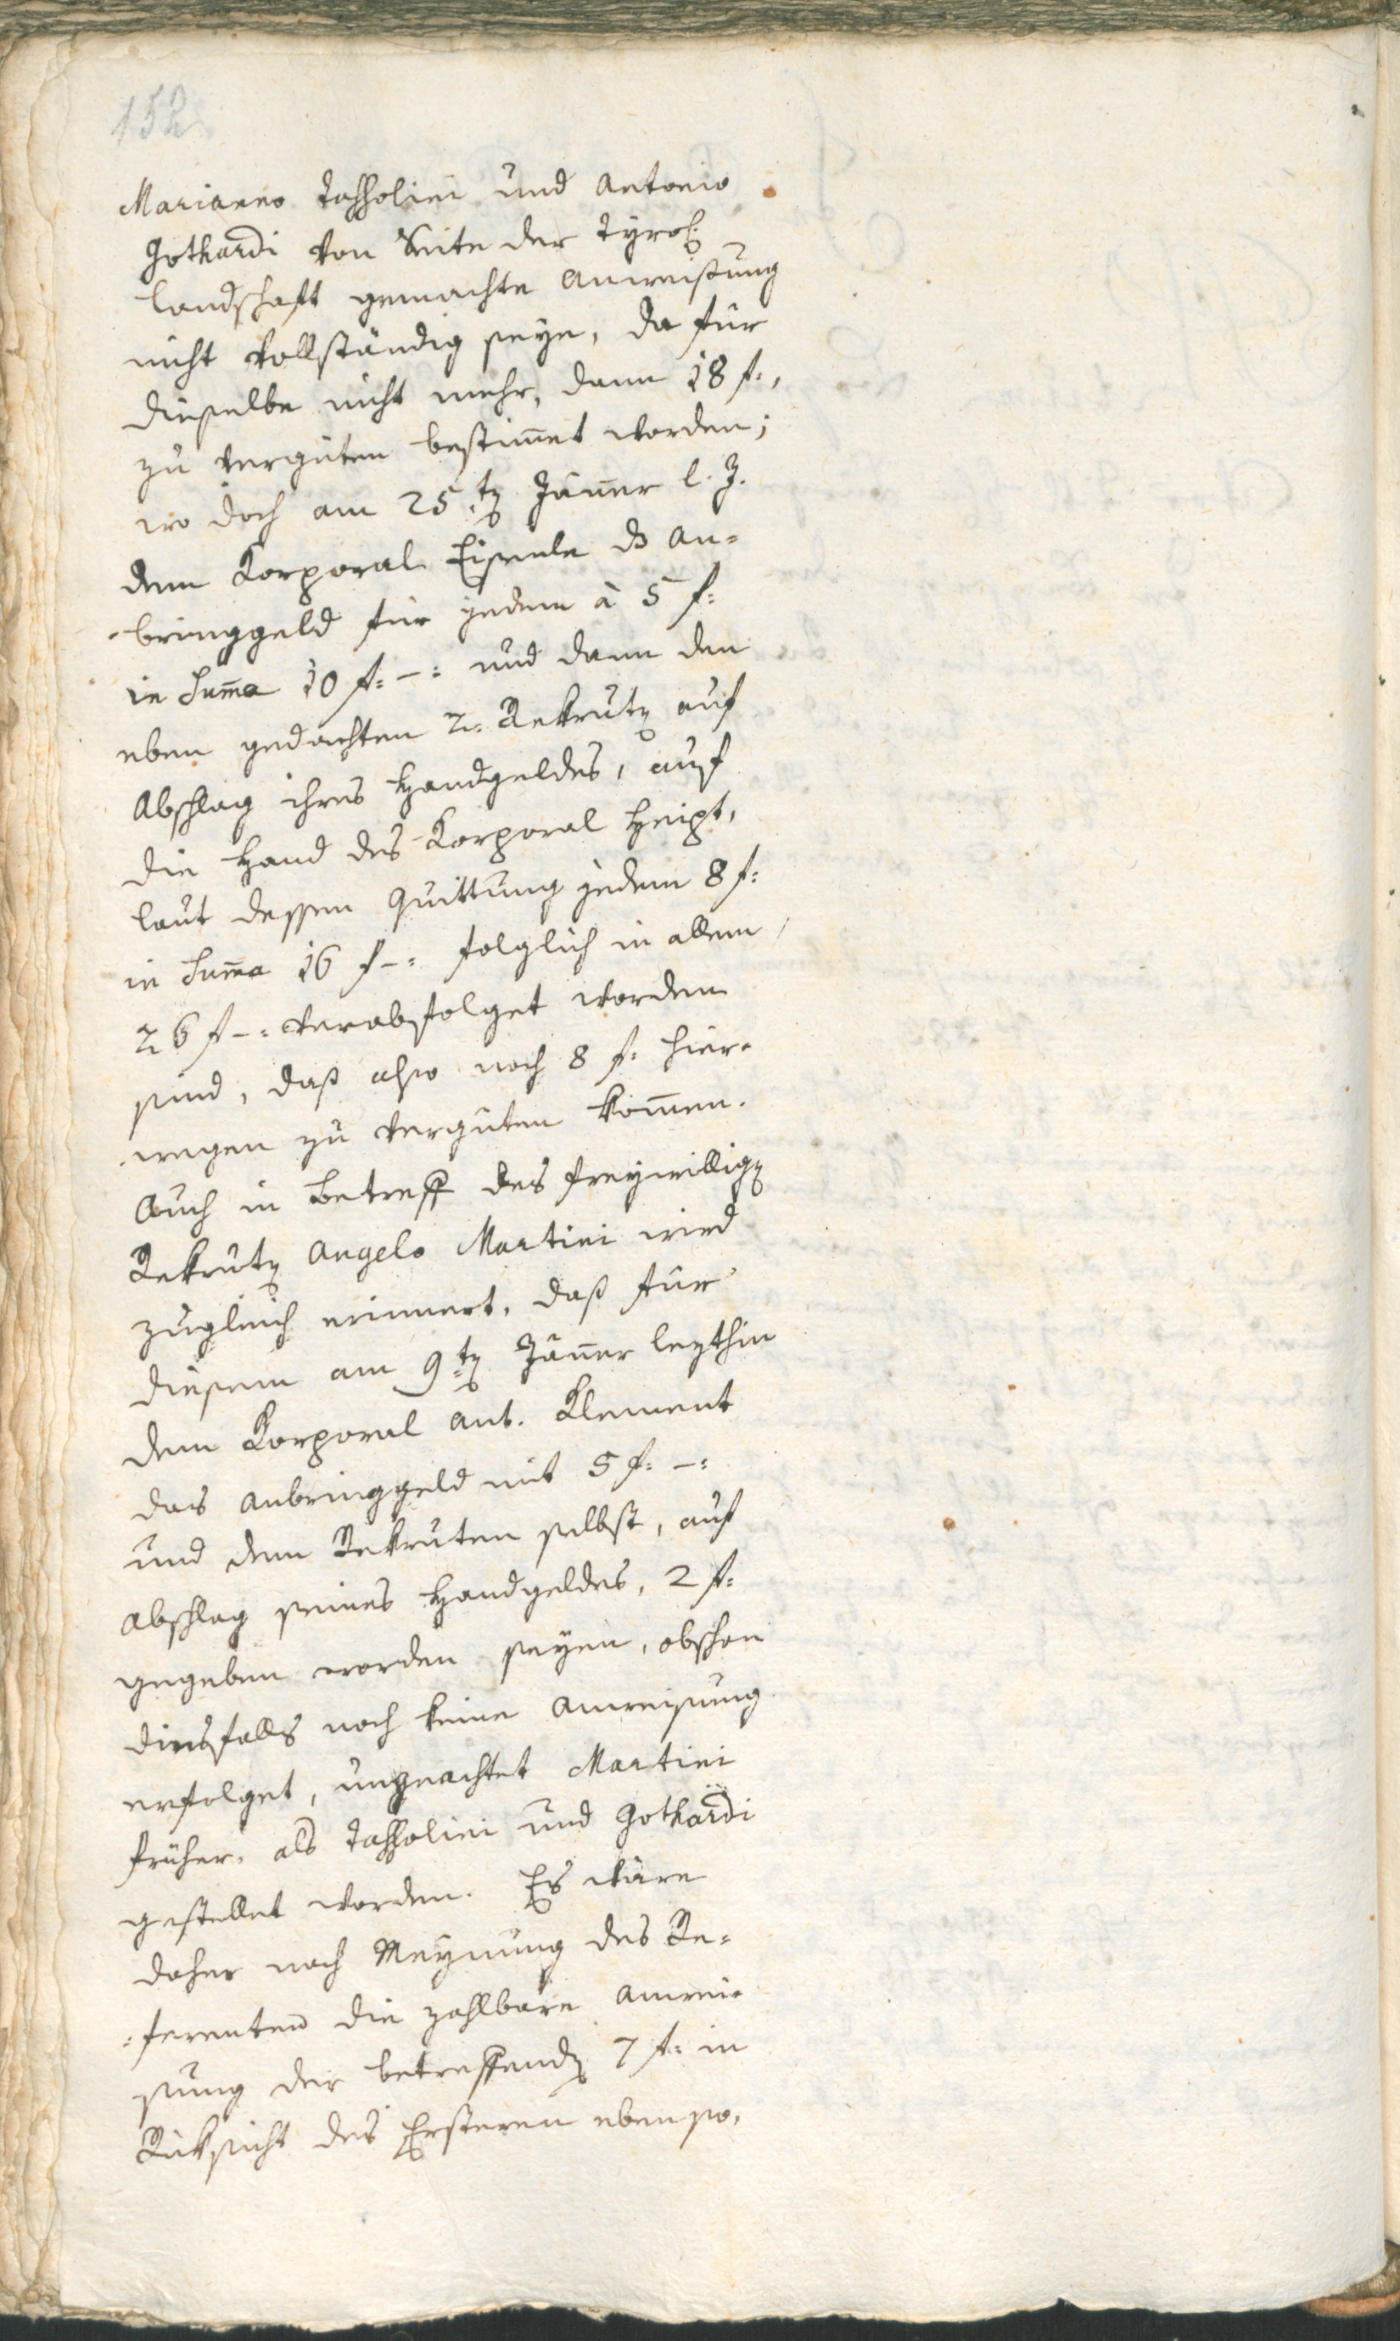 152
Marianno Tasholini und Antonio
Gothardi von Seite der Tyrol:
Landschaft gemachte Anweisung
nicht vollständig seye, da für
dieselbe nicht mehr, dann 18 f.,
zu vergüten bestim̄et worden;
wo doch am 25.ten Jäner l. J.
dem Korporal Eisenle ds An=
bringgeld für jeden à 5 f:
in Sum̄a 10 f: –: und dann den
eben gedachten 2. Rekruten auf
Abschlag ihres Handgeldes, auf
die Hand des Korporal Heipt,
laut dessen Quittung jedem 8 f:
in Sum̄a 16 f –: folglich in allem
26 f –: verabfolget worden
sind, daß also noch 8 f: hier=
wegen zu vergüten kom̄en.
Auch in Betreff des freywilligen
Rekruten Angelo Martini wird
zugleich erinnert, daß für
diesem am 9ten Jäner lezthin
dem Korporal Ant. Klement
das Anbringgeld mit 5 f: –:
und dem Rekruten selbst, auf
Abschlag seines Handgeldes, 2 f:
gegeben worden seyen, obschon
diesfalls noch keine Anweisung
erfolget, ungeachtet Martini
früher, als Tasholini und Gothardi
gestellet worden. Es wäre
daher nach Meynung des Re=
=ferenten die zahlbare Anwei=
sung der betreffenden 7 f: in
Rüksicht des Ersteren ebenso,